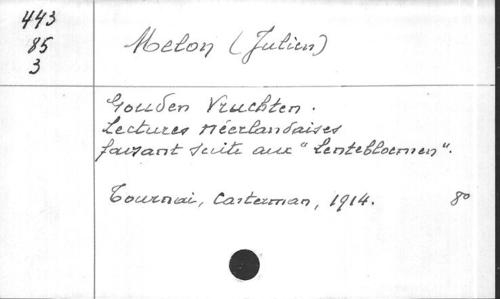 443
85
3
Melon (Julien)
Gouden Vruchten.
Lectures néerlandaises
faisant suite aux "Lentebloemen".
Tournai, Casterman, 1914. 8°